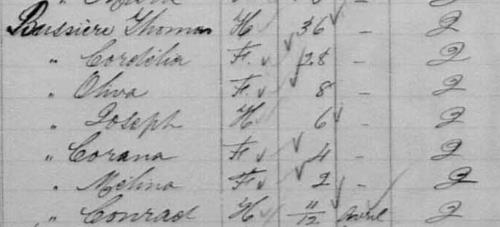 Bussière Thomas H 36 - 2
" Cordélia F. 28 - 2
" Oliva F. 8 - 2
" Joseph H 6 - 2
" Corana F 4 - 2
" Mélina F 2 - 2
" Conrad H 11/12 Avril 2